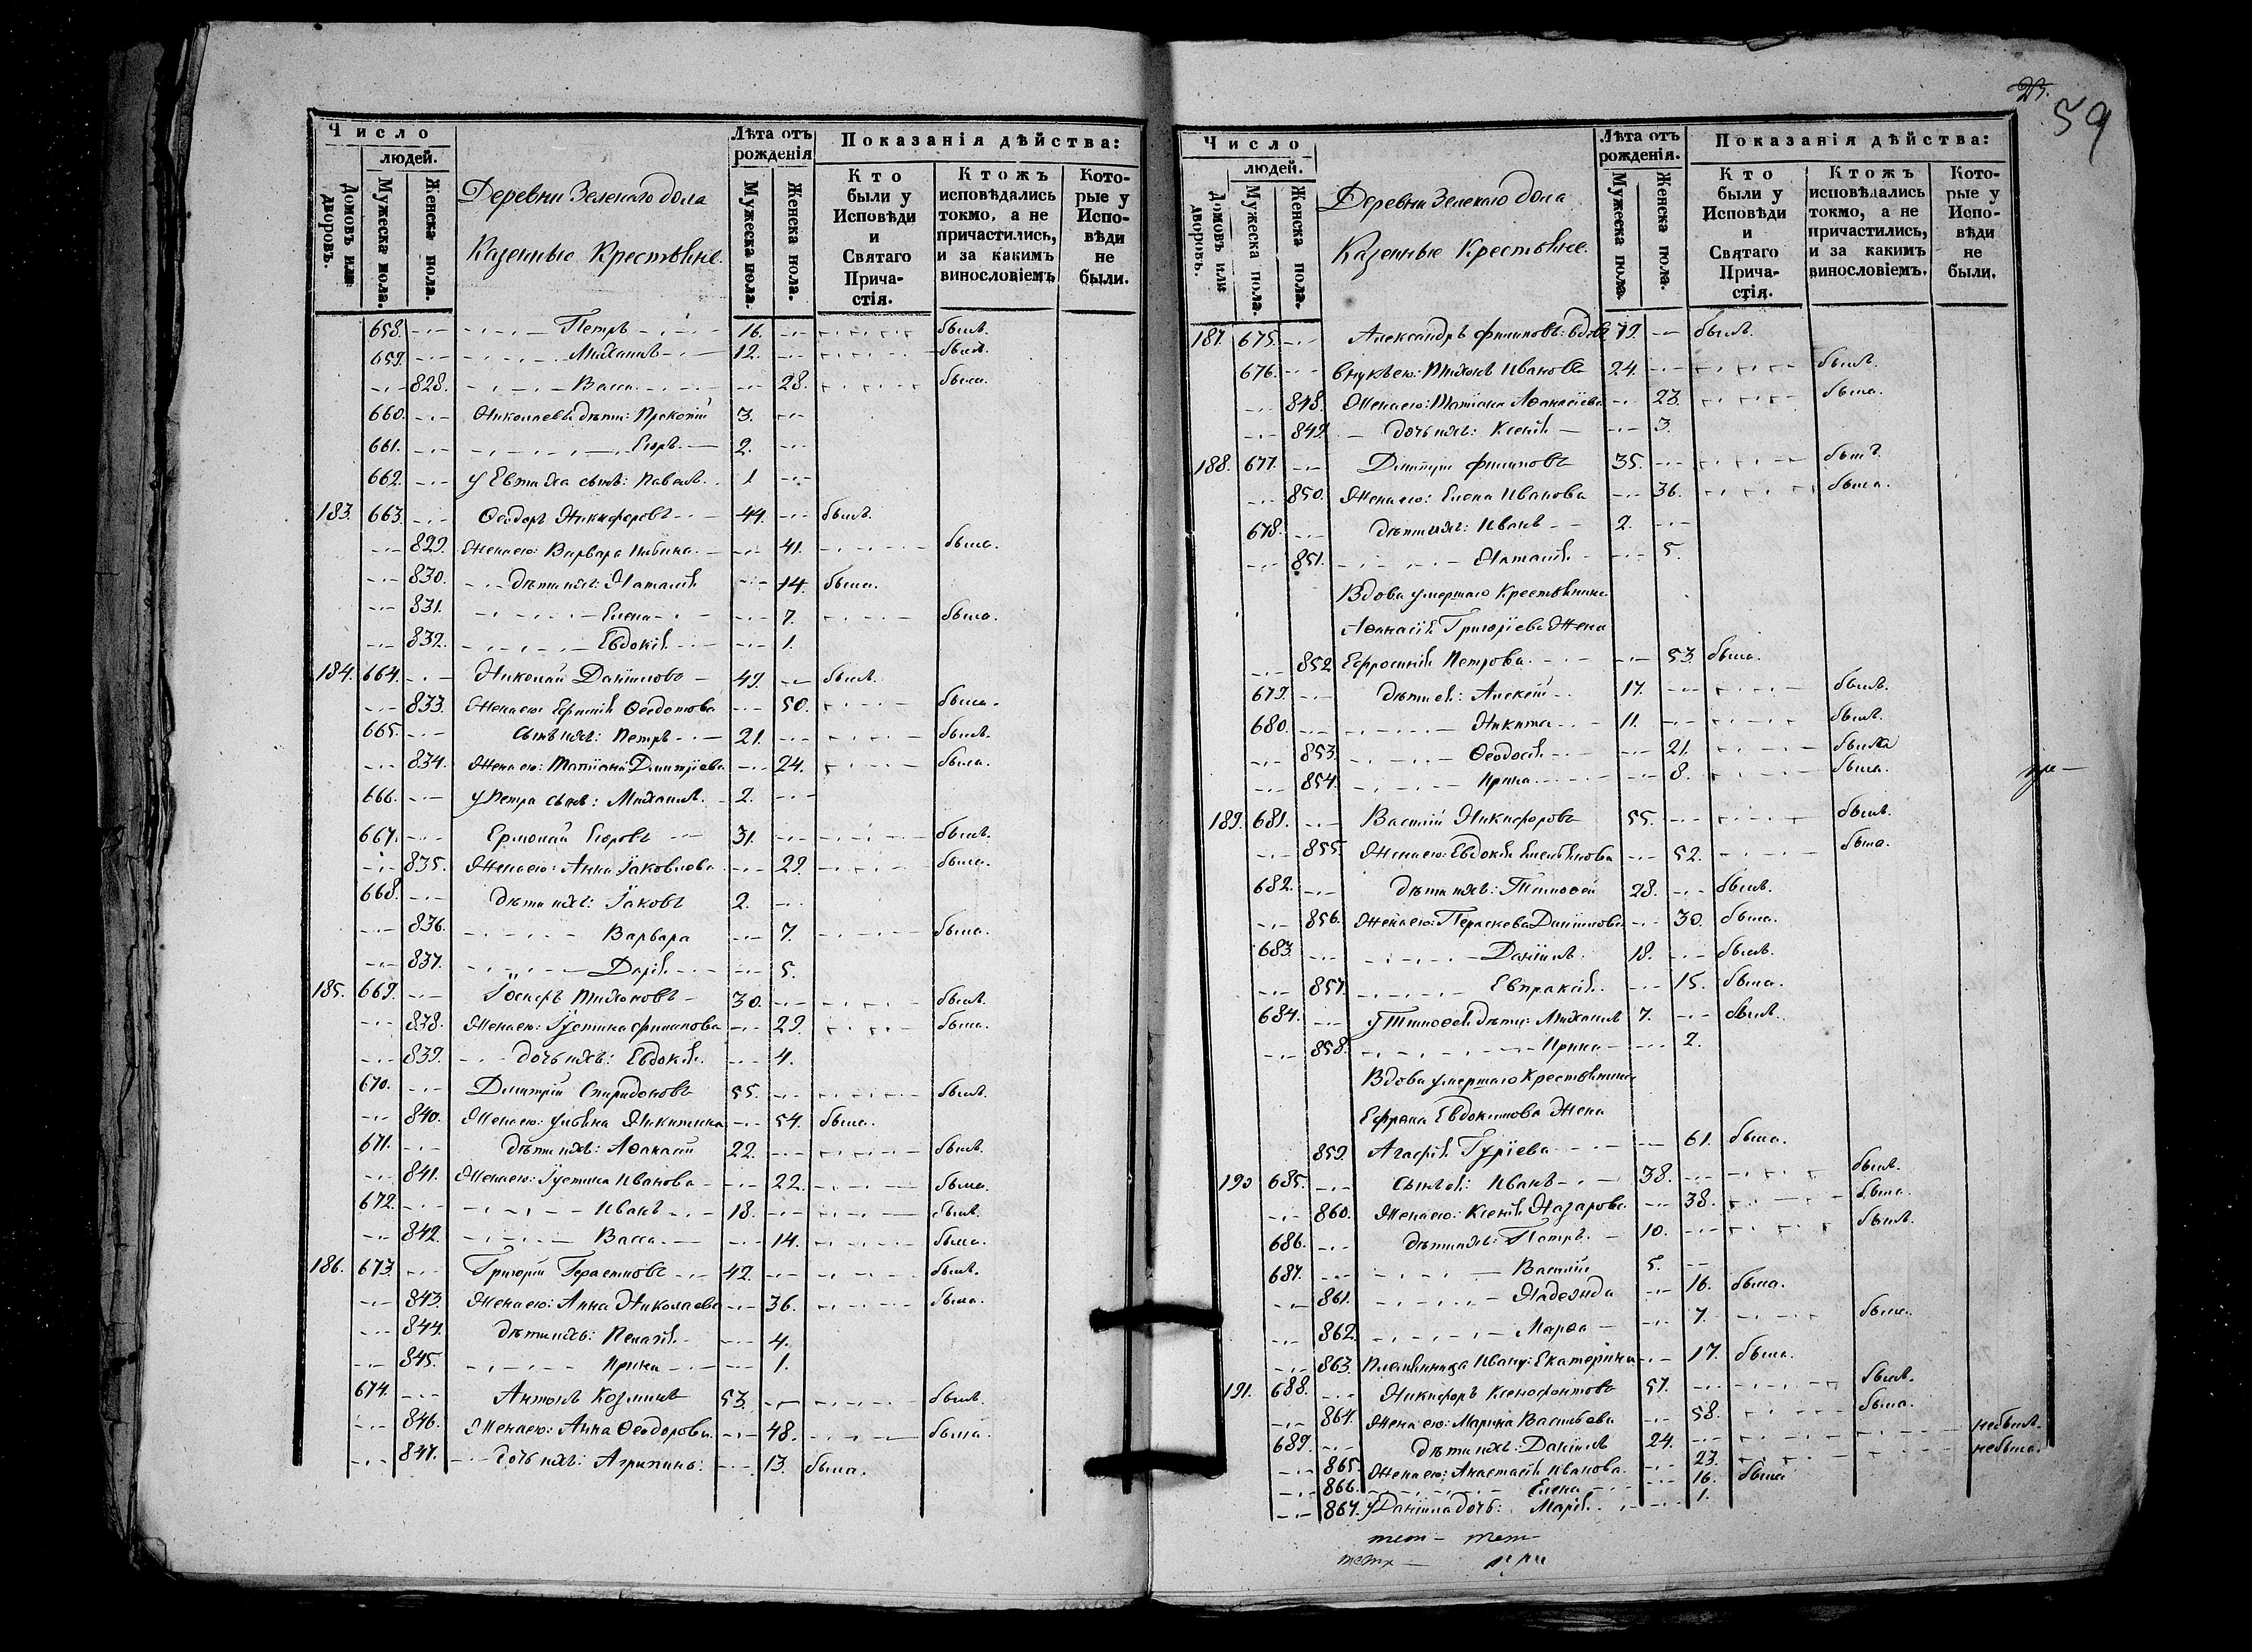 Число
людей.
Домовъ или дворовъ.
Мужеска пола.
Женска пола.
Деревни Зеленаго дола
Казенные Крестьяне.
Лѣта отъ рожденія
Мужеска пола.
Женска пола.
Показанія дѣйства:
Кто были у Исповѣди и Святаго Причастія.
Ктожъ исповѣдались токмо, а не причастились, и за какимъ винословіемъ
Которые у Исповѣди не были.
658. Петръ 16. былъ.
659. Михаилъ 12. былъ.
828. Васса 28. была.
660. Николаевы дѣти: Прокопій 3.
661. Егоръ 2.
662. у Евтиха сынъ: Павелъ 1
183. 663. Ѳеодоръ Никифоровъ 44. былъ.
829. Жена его: Варвара 41. была.
830. дѣти ихъ: Наталія 14. была.
831. Елена 7. была.
832. Евдокія 1.
184. 664. Николай Даниловъ 49. былъ.
833. Жена его Ефимія Ѳеодотова 50. была.
665. Сынъ ихъ: Петръ 21. былъ.
834. Жена его: Татіана Димитріева 24. была.
666. у Петра сынъ: Михаилъ 2.
667. Ермолай Егоровъ 31. былъ.
835. Жена его: Анна Іаковлева 29. была.
668. дѣти ихъ: Іаковъ 2.
836. Варвара 7. была.
837. Дарія 5.
185. 669. Іосифъ Тихоновъ 30. былъ.
838. Жена его: Іустина Филипова 29. была.
839. дочь ихъ: Евдокія 4.
670. Димитрій Спиридоновъ 55. былъ.
840. Жена его: Ульяна Никитина 54. была.
671. дѣти ихъ: Аѳанасій 22. былъ.
841. Жена его: Іустина Иванова 22. была.
672. Иванъ 18. былъ.
842. Васса 14. была.
186. 673. Григорій Герасимовъ 42. былъ.
843. Жена его: Анна Николаева 36. была.
844. дѣти ихъ: Пелагія 4.
845. Ирина 1.
674. Антонъ Козминъ 53. былъ.
846. Жена его: Анна Ѳеодорова 48. была.
847. дочь ихъ: Агрипина: 13. была.
59
Число
людей.
Домовъ или дворовъ.
Мужеска пола.
Женска пола.
Деревни Зеленаго дола
Казенные Крестьяне.
Лѣта отъ рожденія.
Мужеска пола.
Женска пола.
Показанія дѣйства:
Кто были у Исповѣди и Святаго Причастія.
Ктожъ исповѣдались токмо, а не причастились, и за какимъ винословіемъ.
Которые у Исповѣди не были.
187. 675. Александръ Филиповъ: вдовъ 79. былъ.
676. Внукъ его: Тихонъ Ивановъ 24. былъ.
848. Жена его: Татіана Аѳанасіева 23. была.
849. дочь ихъ: Ксенія 3.
188. 677. Димитрій Филиповъ 35. былъ.
850. Жена его: Елена Иванова 36. была.
678. дѣти ихъ: Иванъ 2.
851. Наталія 5.
Вдова умершаго Крестьянина
Аѳанасія Григоріева Жена
852. Ефросинія Петрова. 53. была.
679. дѣти ея: Алексѣй 17. былъ.
680. Никита 11. былъ.
853. Ѳеодосія 21. была
854. Ирина 8. была.
189. 681. Василій Никифоровъ 55. былъ.
855. Жена его: Евдокія Емельянова 52. была.
682. дѣти ихъ: Тимоѳей 28. былъ.
856. Жена его: Параскева Даниилова 30. была.
683. Даніилъ 18. былъ.
857. Евпраксія 15. была.
684. у Тимоѳея дѣти: Михаилъ 7. былъ.
858. Ирина 2.
Вдова умершаго Крестьянина
Ефрема Евдокимова Жена
859. Агафія Гуріева 61. была.
190 685. Сынъ ея: Иванъ 38. былъ.
860. Жена его: Ксенія Назарова 38. была.
686. дѣти ихъ: Петръ 10. былъ.
687. Василій 5.
861. Надежда 16. была.
862. Марѳа 7. была.
863. Племянница Ивану: Екатерина 17. была.
191. 688. Никифоръ Ксенофонтовъ 57. былъ.
864. Жена его: Марина Васильева 58. была.
689. дѣти ихъ: Даніилъ 24. не былъ.
865. Жена его: Анастасія Иванова. 23. не была.
866. Елена 16. была
867. у Даніила дочь: Марія 1.